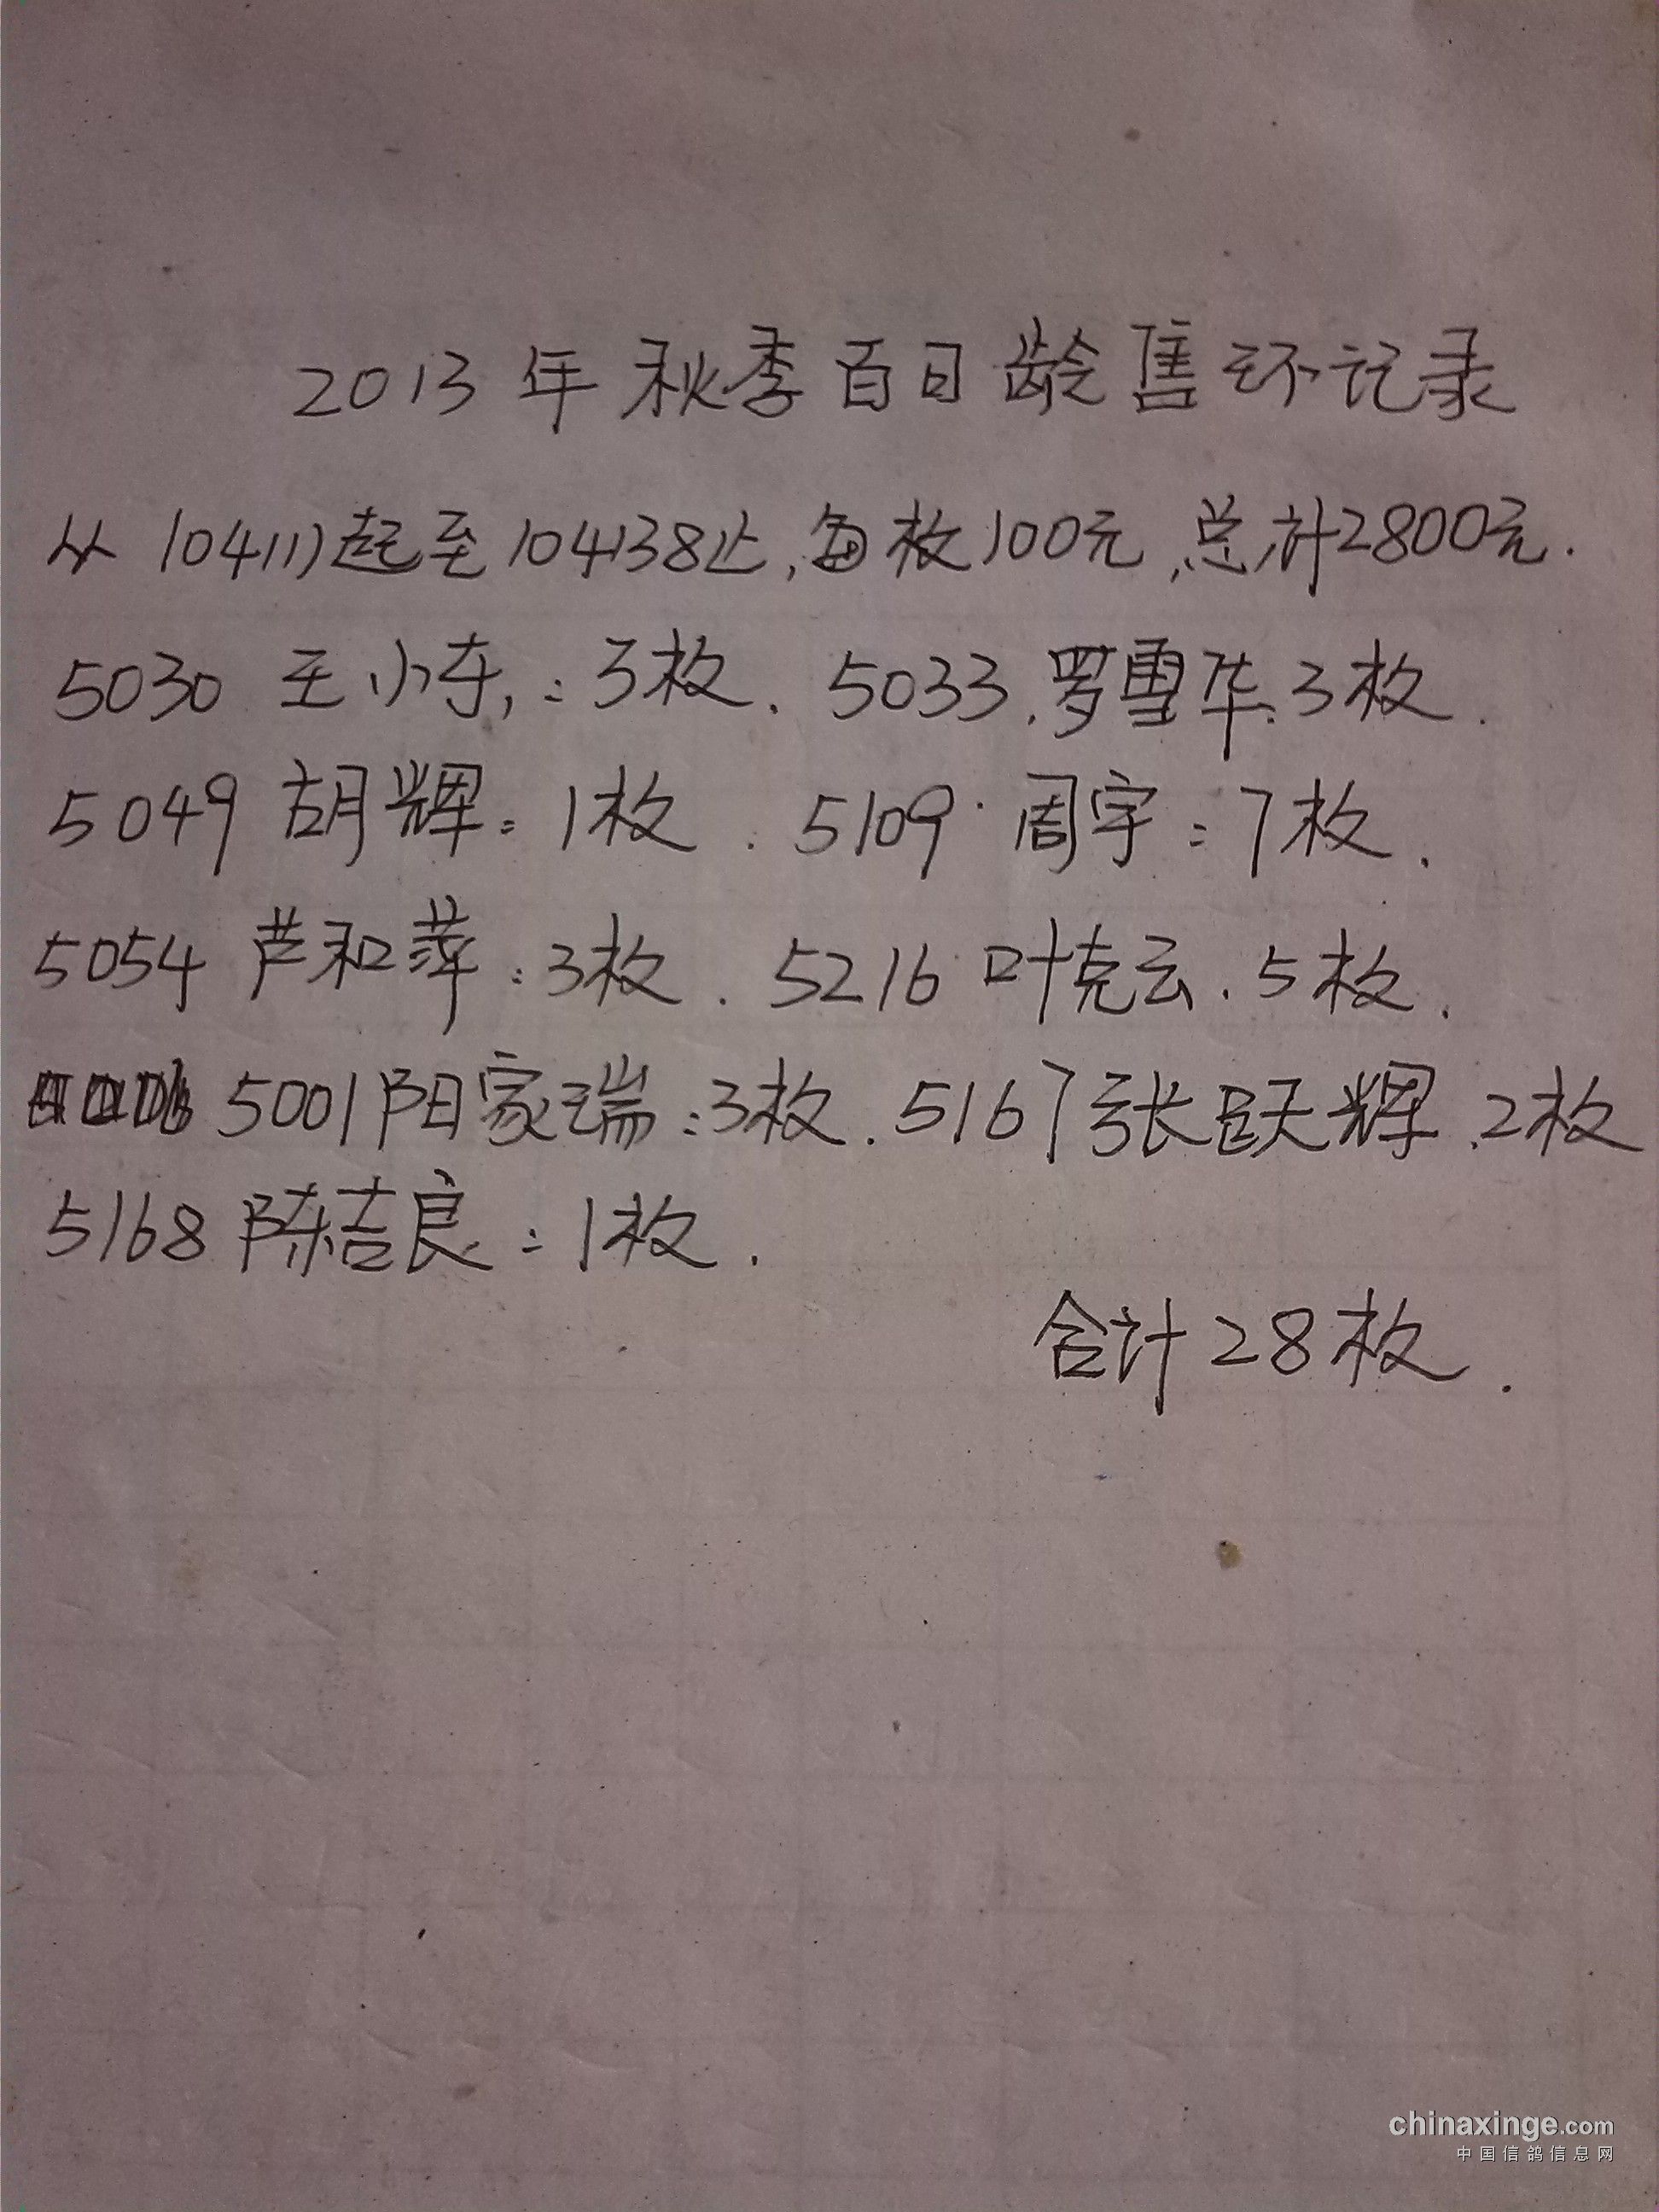 2013年秋季百日龄售环记录
从104111起至104138止,每枚100元,总计2800元.
5030 王小东,:3枚. 5033.罗雪华.3枚.
5049 胡辉:1枚. 5109.周宇:7枚.
5054 芦和萍:3枚. 5216 叶克云.5枚.
5001阳家瑞:3枚. 5167张跃辉.2枚
5168 陈吉良:1枚.
合计28枚.
chinaxinge.com
中国信鸽信息网